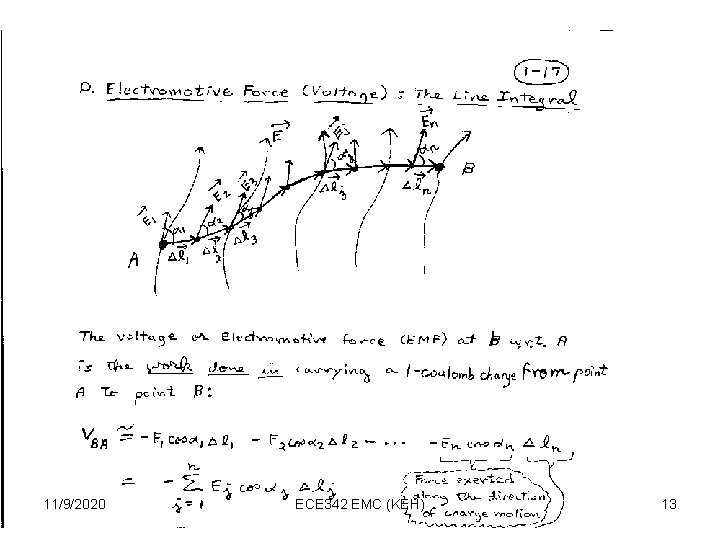 1-17
D. Electromotive Force (Voltage) : The Line Integral
E⃗
E⃗1 E⃗2 E⃗3 E⃗j E⃗n
α1 α2 α3 αj αn
A Δl⃗1 Δl⃗2 Δl⃗3 Δl⃗j Δl⃗n B
The voltage or Electromotive force (EMF) at B w.r.t. A
is the work done in carrying a 1-coulomb charge from point
A to point B:
VBA ≅ -E1 cosα1 Δl1 - E2 cosα2 Δl2 - ... -En cosαn Δln
= - Σ(j=1 to n) Ej cosαj Δlj
Force exerted
along the direction
of charge motion
11/9/2020 ECE342 EMC (KEH) 13